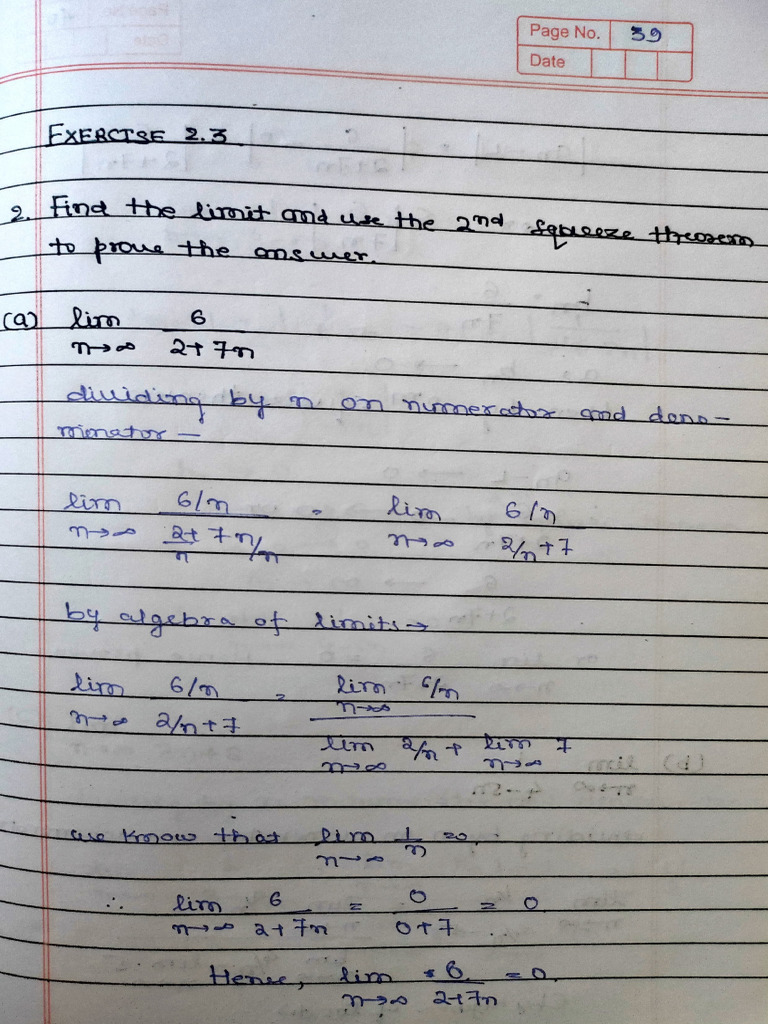 Page No. 39
Date
EXERCISE 2.3.
2. Find the limit and use the 2nd squeeze theorem
to prove the answer.
(a) lim n→∞ 6/(2+7n)
dividing by n on numerator and deno-
minator —
lim n→∞ (6/n)/(2/n + 7n/n) = lim n→∞ (6/n)/(2/n+7)
by algebra of limits →
lim n→∞ (6/n)/(2/n+7) = (lim n→∞ 6/n)/(lim n→∞ 2/n + lim n→∞ 7)
we know that lim n→∞ 1/n = 0.
∴ lim n→∞ 6/(2+7n) = 0/(0+7) = 0
Hence, lim n→∞ 6/(2+7n) = 0.